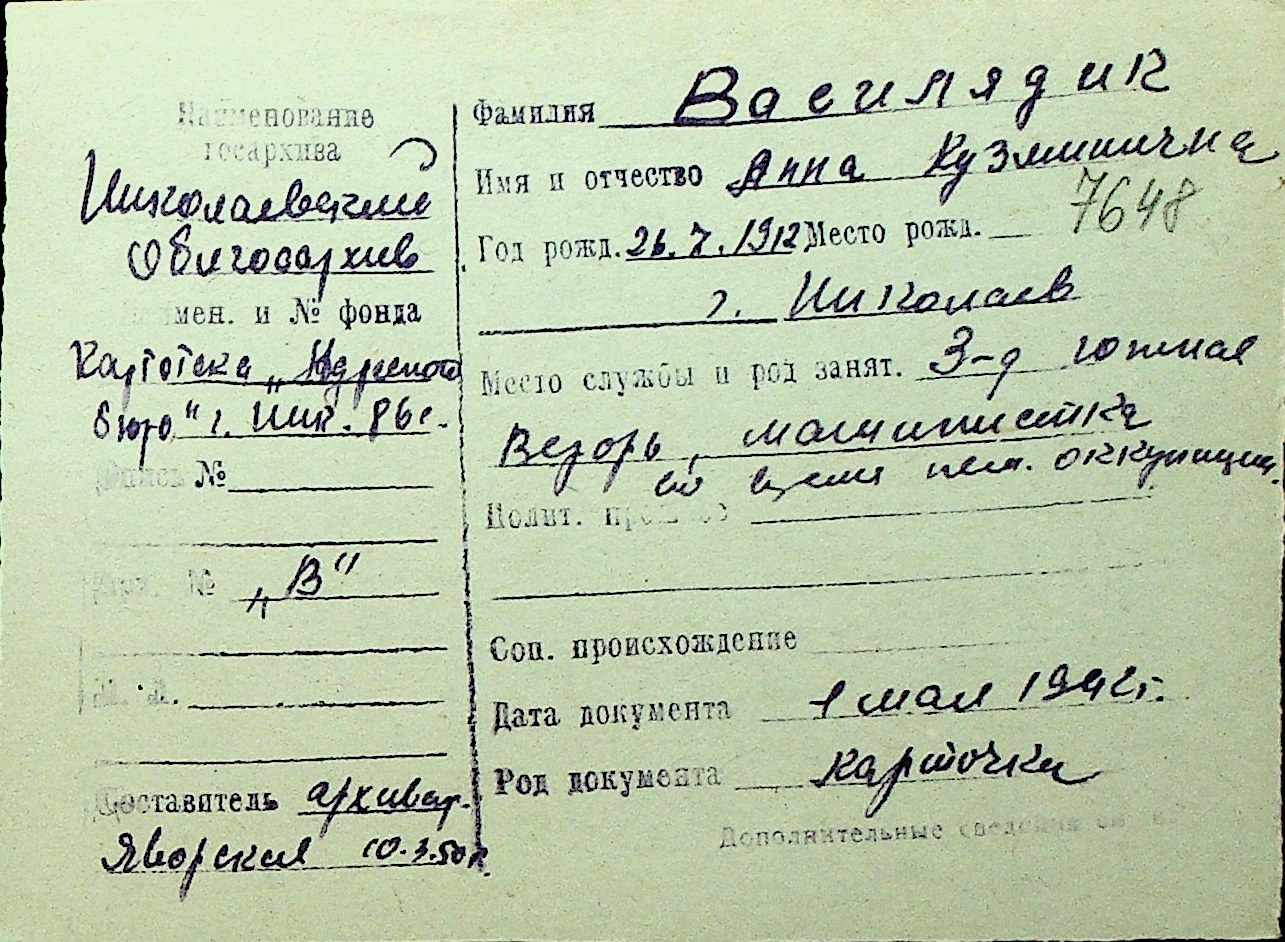 Наименование
госархива
Николаевский
Облгосархив
Наимен. и № фонда
Картотека „Адресного
бюро" г. Ник. 86с.
Опись №
„В"
Составитель архивар.
Яворская 10.3.50г.
Фамилия Василядик
Имя и отчество Анна Кузминична
7648
Год рожд. 26.7.1912 Место рожд.
г. Николаев
Место службы и род занят. З-д южная
Верфь, машинистка
во время нем. оккупации.
Полит. прошлое
Соц. происхождение
Дата документа 1 мая 1942г.
Род документа карточка
Дополнительные сведения